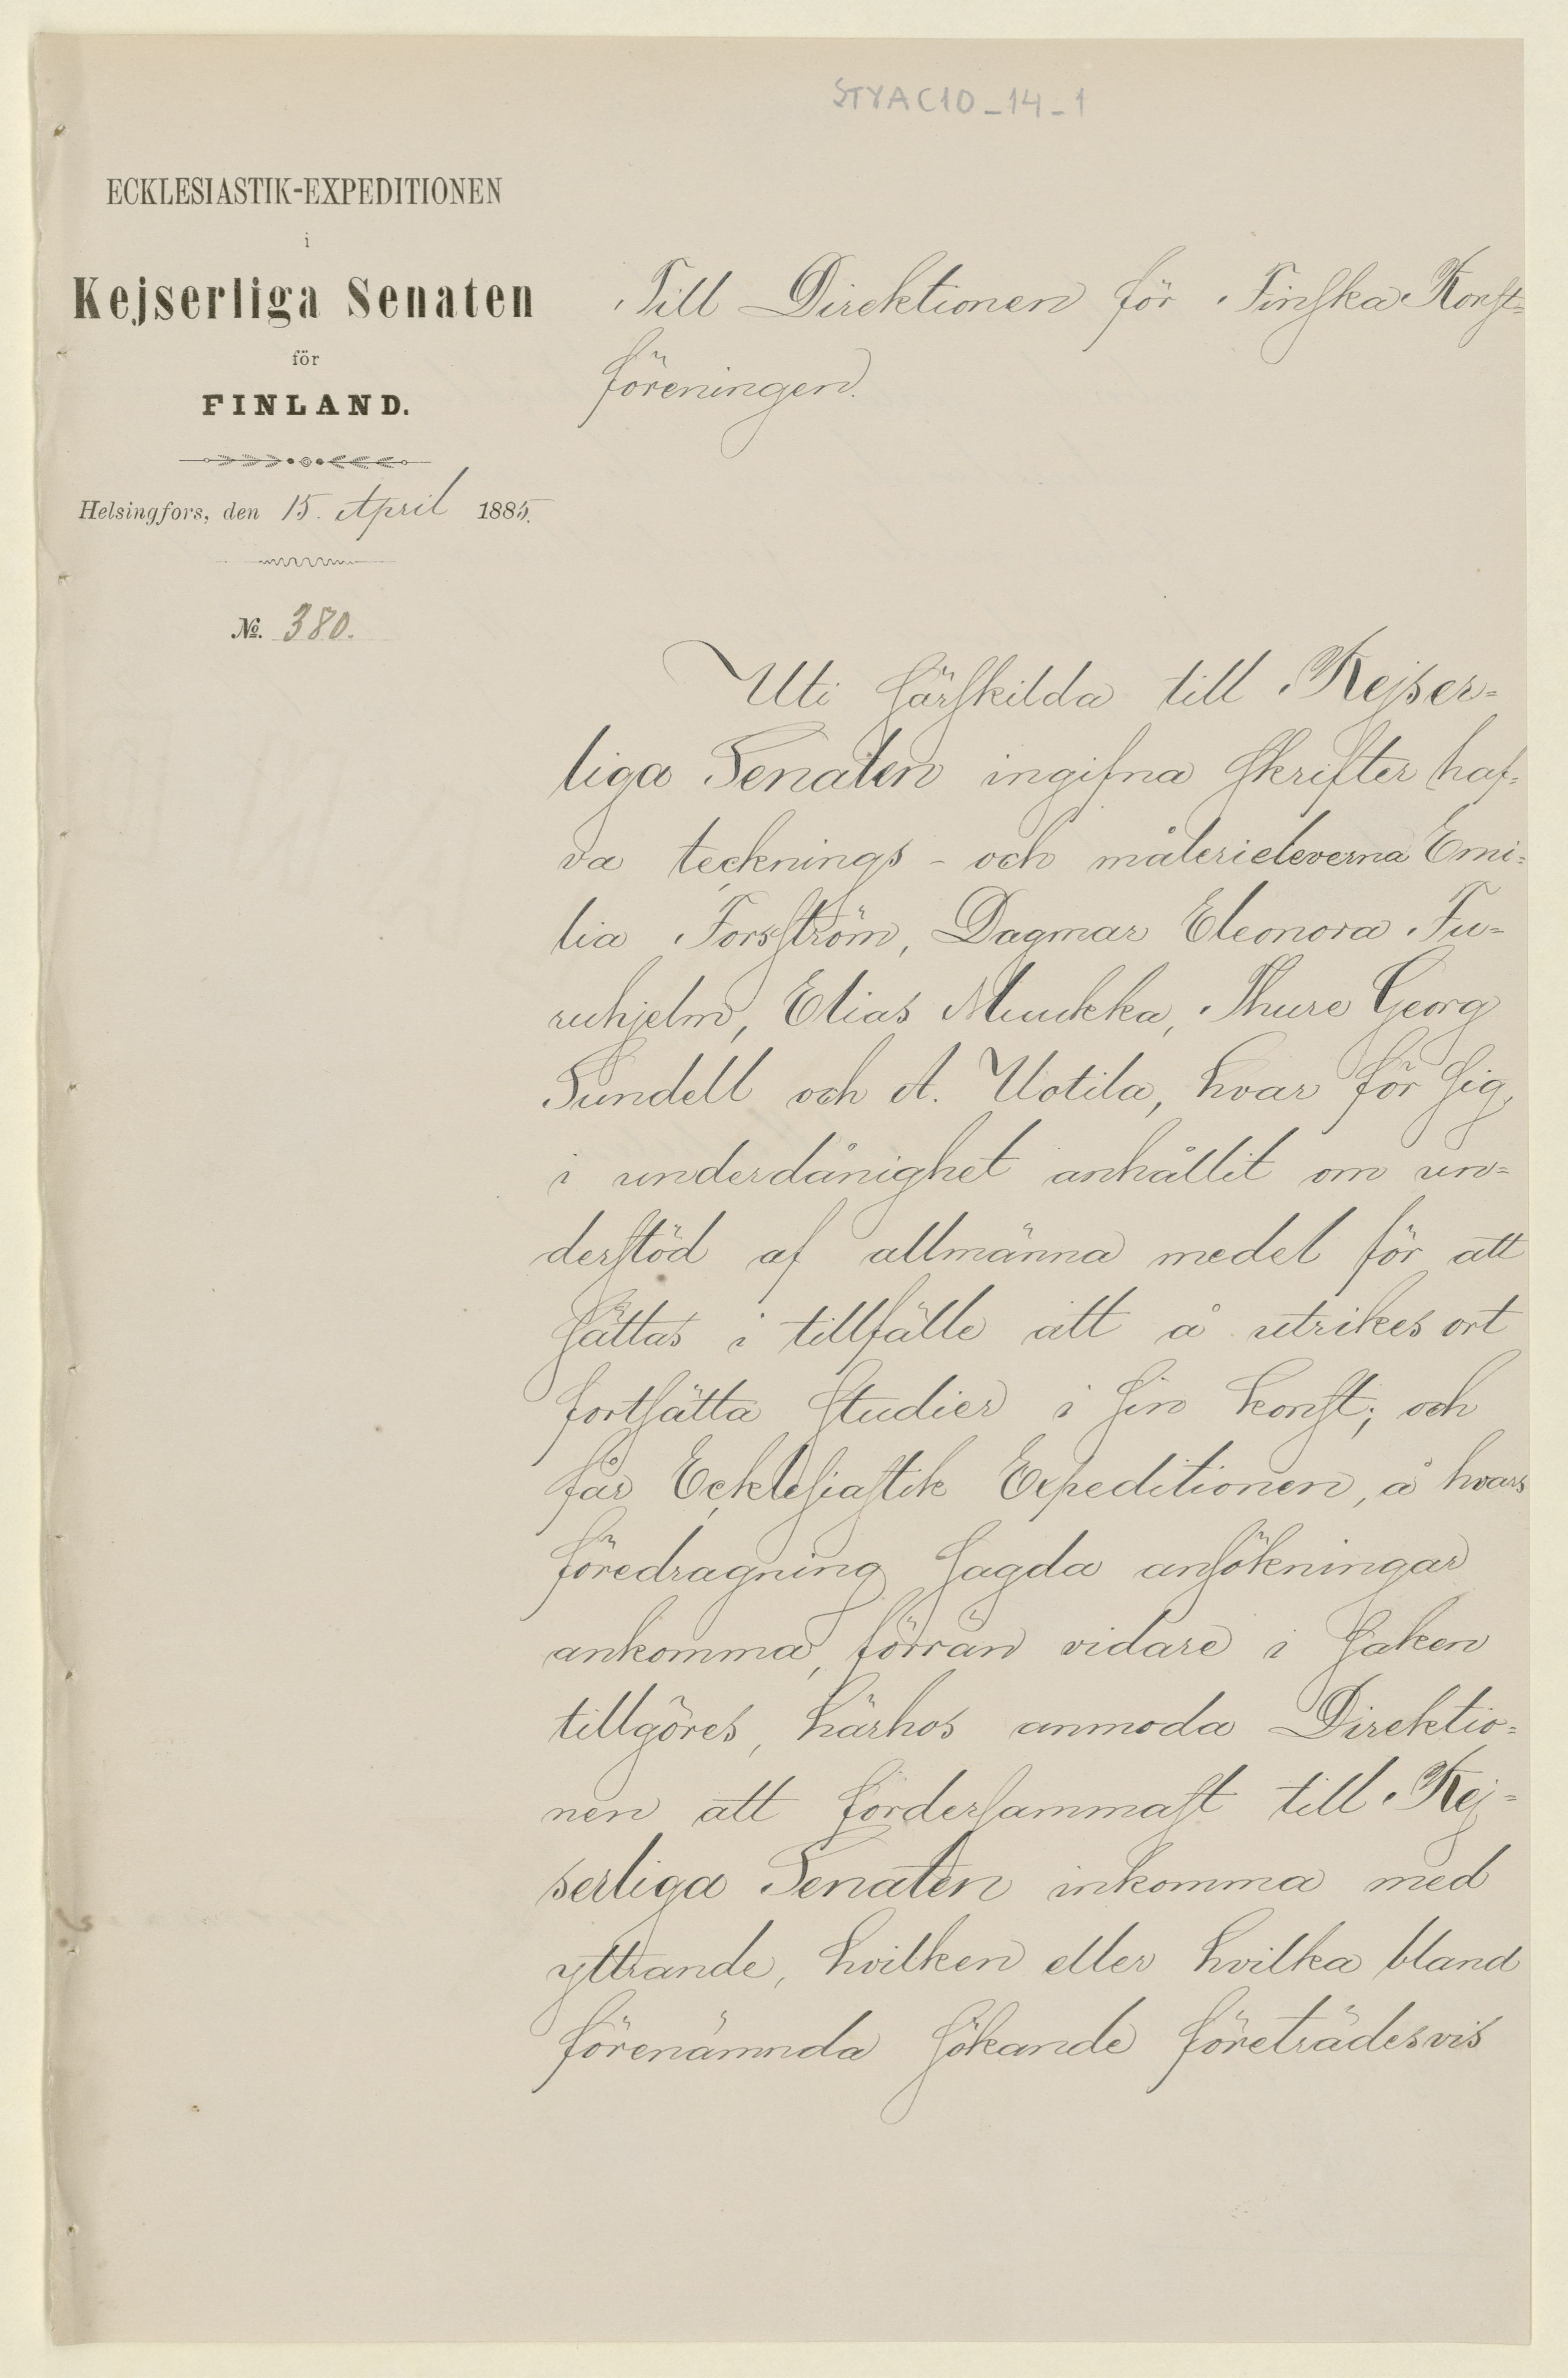 STYAC10_14_1
ECKLESIASTIK-EXPEDITIONEN
i
Kejserliga Senaten
för
FINLAND.
Helsingfors, den 15. April 1885.
No. 380.
Till Direktionen för Finska Konst-
föreningen.
Uti särskilda till Kejser-
liga Senaten ingifna skrifter haf-
va tecknings- och målerieleverna Emi-
lia Forsström, Dagmar Eleonora Fu-
ruhjelm, Elias Muukka, Thure Georg
Sundell och A. Uotila, hvar för sig,
i underdånighet anhållit om un-
derstöd af allmänna medel för att
sättas i tillfälle att å utrikes ort
fortsätta studier i sin konst; och
får Ecklesiastik Expeditionen, å hvars
föredragning sagda ansökningar
ankomma, förrän vidare i saken
tillgöres, härhos anmoda Direktio-
nen att fördersammast till Kej-
serliga Senaten inkomma med
yttrande, hvilken eller hvilka bland
förenämnda sökande företrädesvis